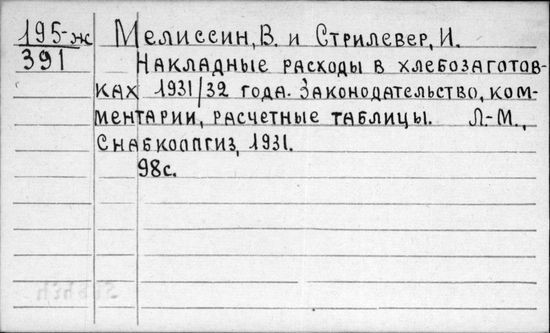 195-ж
391
Мелиссин, В. и Стрилевер, И.
Накладные расходы в хлебозаготов-
ках 1931/32 года. Законодательство, ком-
ментарии, расчетные таблицы. Л.-М.,
Снабкоопгиз, 1931.
98с.